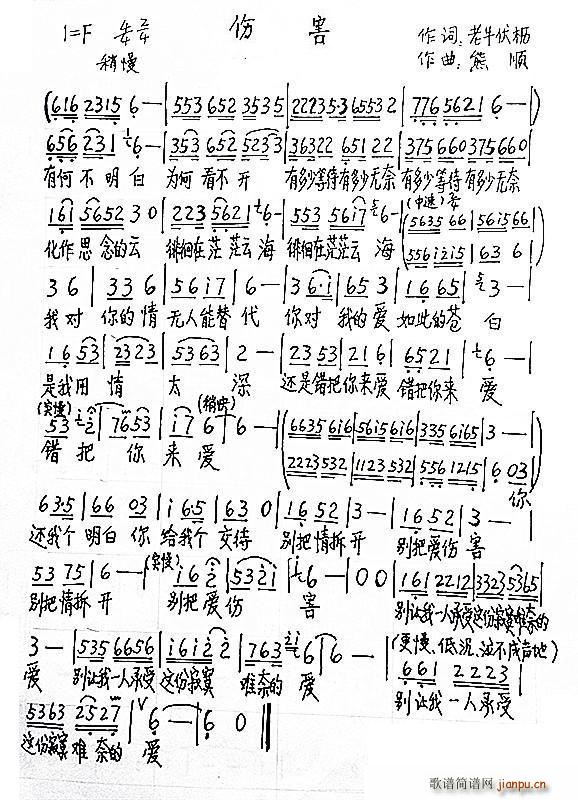 伤害
1=F
稍慢
作词:老牛伏枥
作曲:熊 顺
(616 2315 6—|553 652 3535|22235·3 65532|77656216—)
656 231 6—|353 652 5233|36322 65122|3756600375660|
有何不明白 为何看不开 有多少等待有多少无奈 有多少等待有多少无奈
161 5652 3 0|223 5621 6—|553 5617 6—|(中速)
(5635 66|5615 66
化作思念的云 徘徊在茫茫云海 徘徊在茫茫云海
556 1215|63 6)
3 6|33 6|56 17|6—|3 6·1|65 3|16 65|3—|
我对你的情无人能替代 你对我的爱如此的苍白
16 53|2323|53 63|2—|23 53|21 6|6521|6—|
是我用情太深 还是错把你来爱 错把你来爱
(突慢) (稍快)
53 12|7653|17 6|6—|(6635 616|5615 616|335 6165|3—|
错把你来爱
2223532|1123 532|556 1215|6 03)
你
63·5|66 03|1 6·5|63 0|16 52|3—|16 52|3—|
还我个明白你给我个交待 别把情拆开 别把爱伤害
(突慢)
53 75|6—|16 2|5321|6—|0 0|161 2212|3323 5365|
别把情拆开 别把爱伤害 别让我一人承受这份寂寞难奈的
3—|535 6656|1612 2|763 6|6—|(更慢、低沉、泣不成声地)
661 2223|
爱 别让我一人承受这份寂寞 难奈的爱 别让我一人承受
5363 2527|6—|6 0‖
这份寂寞难奈的爱
歌谱简谱网
jianpu.cn